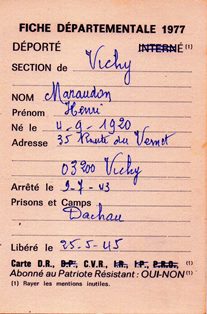 FICHE DÉPARTEMENTALE 1977
DÉPORTÉ INTERNÉ (1)
SECTION de Vichy
NOM Maraudon
Prénom Henri
Né le 4-9-1920
Adresse 35 Route du Vernet
03200 Vichy
Arrêté le 9-7-43
Prisons et Camps
Dachau
Libéré le 25-5-45
Carte D.R., D.P., C.V.R., I.R., I.P., P.R.O., (1)
Abonné au Patriote Résistant : OUI-NON (1)
(1) Rayer les mentions inutiles.